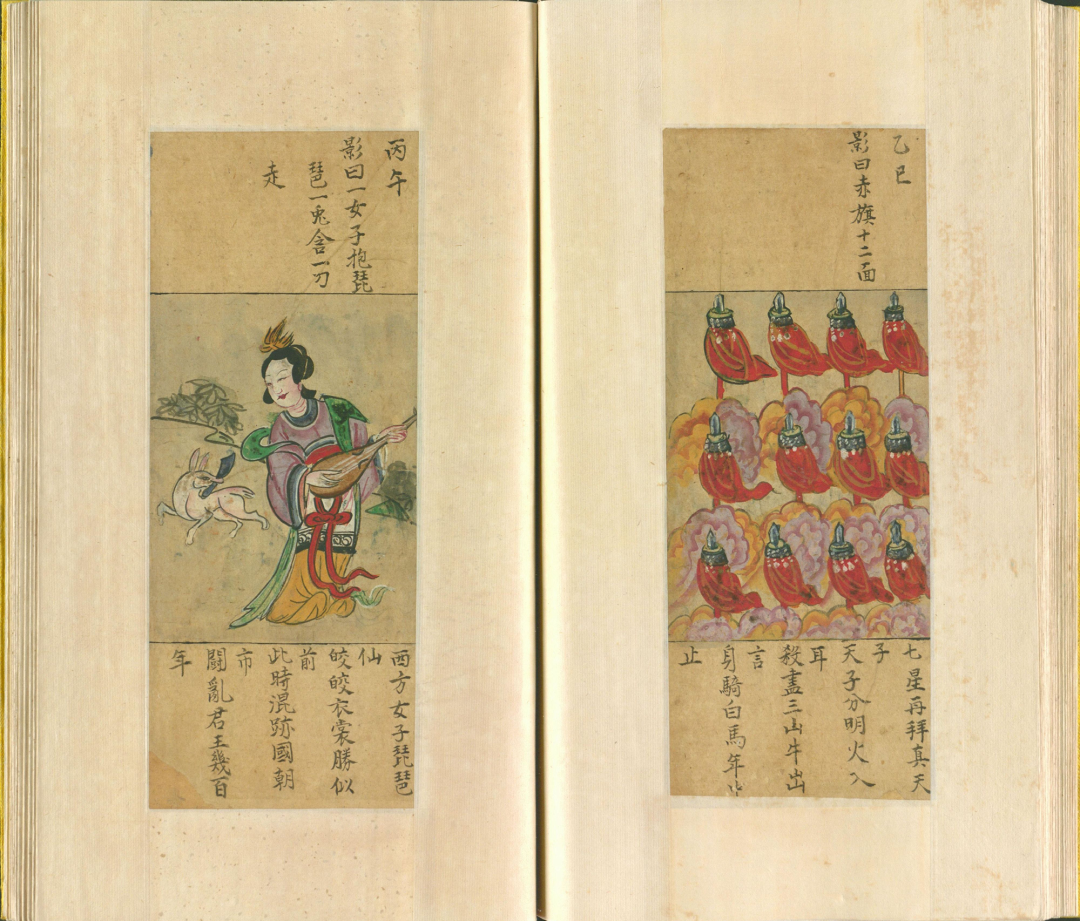 乙巳
影曰赤旗十二面
七星再拜真天
子
天子分明火入
耳
殺盡三山牛出
言
身騎白馬年
止
丙午
影曰一女子抱琵
琶一兎含一刀
走
西方女子琵琶
仙
皎皎衣裳勝似
前
此時混跡國朝
市
鬧亂君王幾百
年